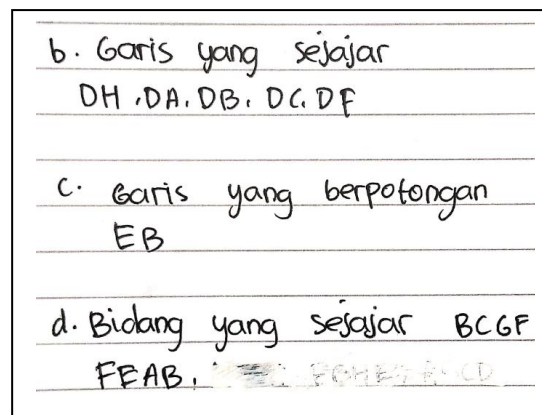 b. Garis yang sejajar
DH, DA, DB, DC, DF
c. Garis yang berpotongan
EB
d. Bidang yang sejajar BCGF
FEAB,